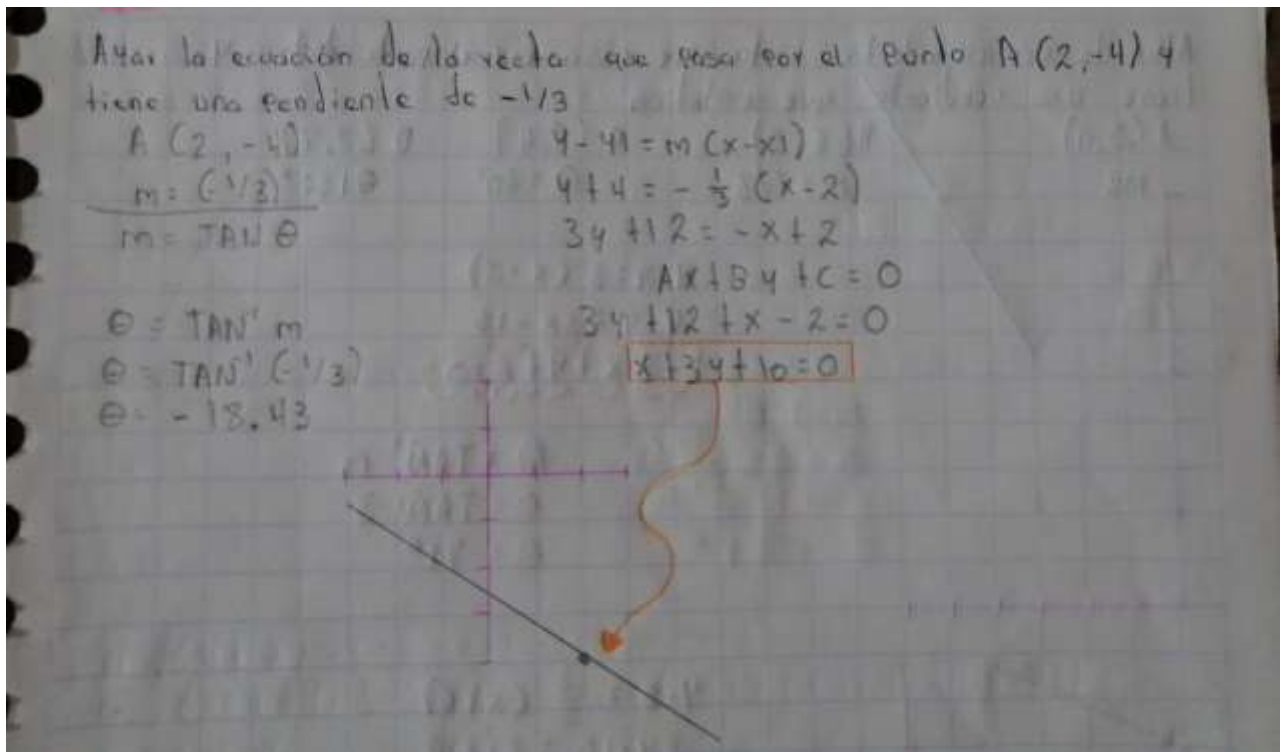 Ayar la ecuación de la recta que pasa por el punto A (2,-4) y
tiene una pendiente de -1/3
A (2, -4)
m= (-1/3)
m= TAN θ
θ = TAN' m
θ = TAN' (-1/3)
θ= -18.43
y-y1=m(x-x1)
y+4=-1/3 (x-2)
3y+12=-x+2
Ax+By+C=0
3y+12+x-2=0
x+3y+10=0